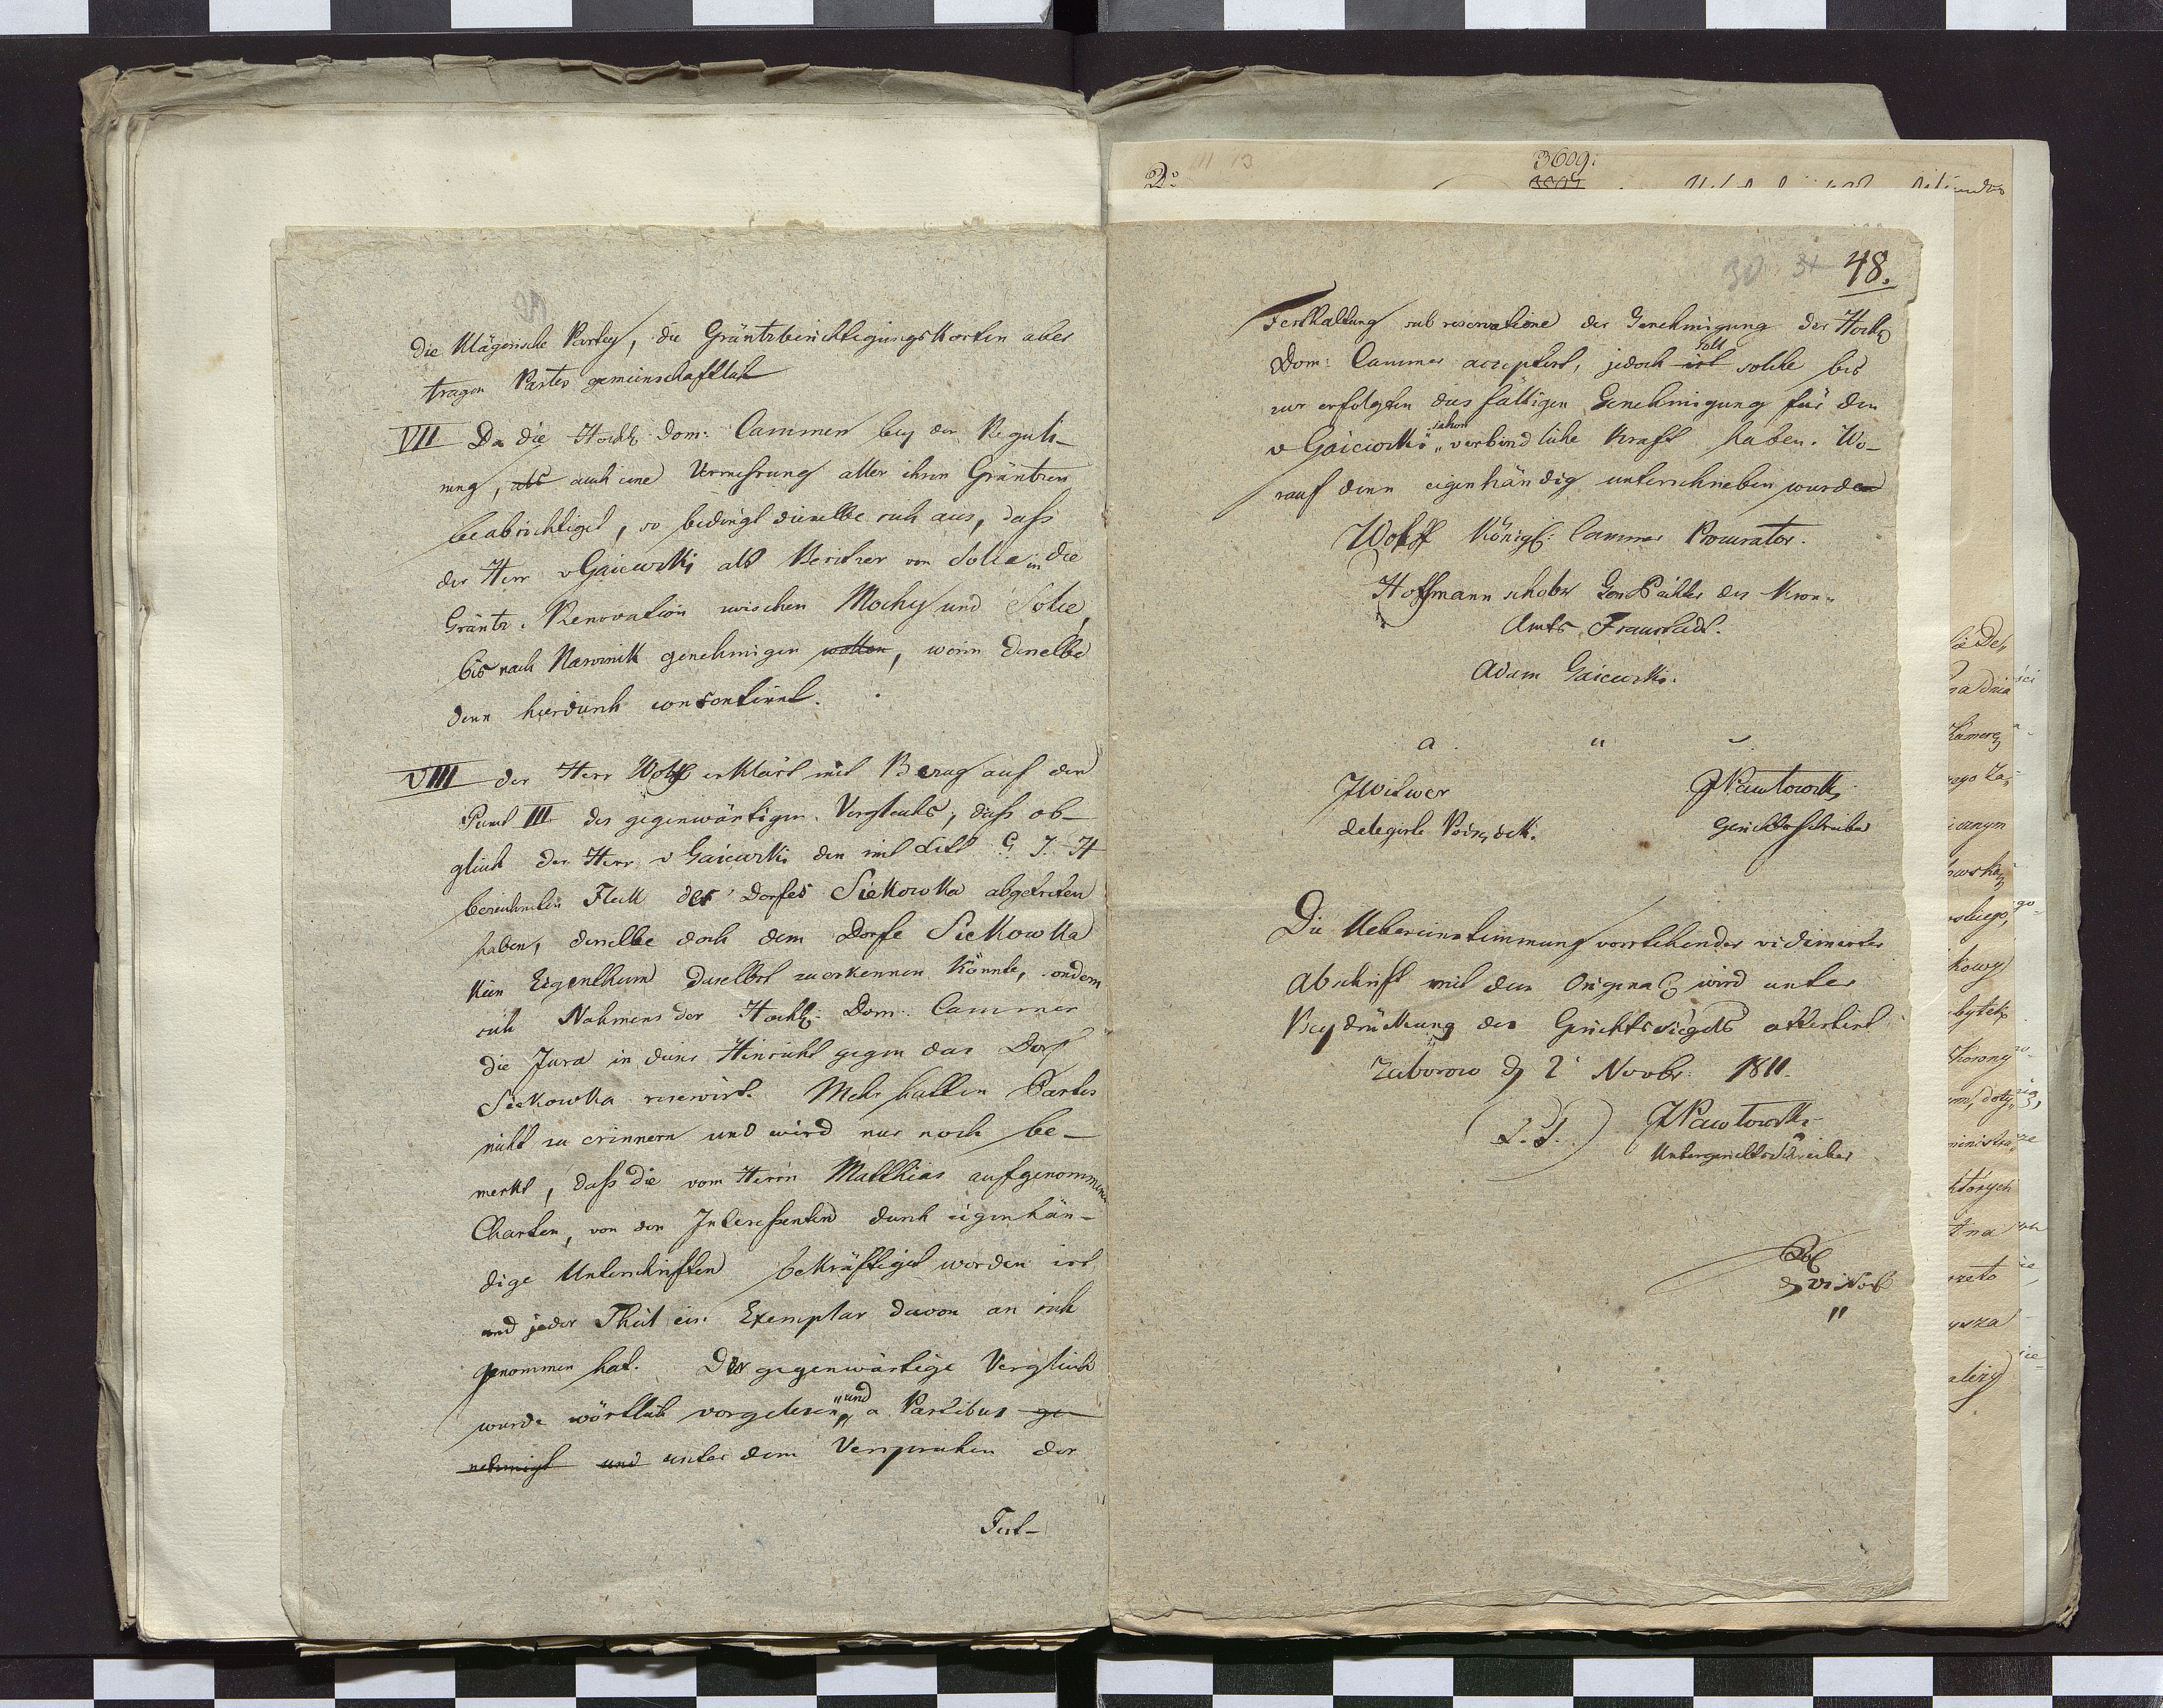 die Klägerische Partey, die Gräntzberichtigungs Kosten aber
tragen Partes gemeinschaftlich
VII Da die Hochl: Dom: Cammer bey der Reguli-
rung, als auch eine Vermessung aller ihrer Gräntzen
beabsichtiget, so bedingt dieselbe sich aus, dass
der Herr v Gaiewski als Besitzer von Solec in die
Gräntz-Renovation zwischen Mochy und Solec,
bis nach genehmigen wollen, worin derselbe
denn hierdurch consentiret.
VIII der Herr Wolff erklärt mit Bezug auf den
Punct III des gegenwärtigen Vergleichs, dass ob-
gleich der Herr v Gaiewski den mit Litt G. J. H
bezeichneten Fleck des Dorfes Siekowka abgetreten
haben, derselbe doch dem Dorfe Siekowka
kein Eigenthum daselbst zuerkennen könnte, sondern
sich Nahmens der Hochl: Dom: Cammer
die Jura in dieser Hinsicht gegen das Dorf
Siekowka reservirt. Mehr hatten Partes
nicht zu erinnern und wird nur noch be-
merkt, dass die vom Herrn Matthias aufgenommenen
Charten, von den Interessenten durch eigenhän-
dige Unterschriften bekräftiget worden ist
und jeder Theil ein Exemplar davon an sich
genommen hat. Der gegenwärtige Vergleich
wurde wörtlich vorgelesen „und a Partibus ge-
nehmigt und unter dem Versprechen der
Fest-
2:
III 13
3609:
30 31 48.
Festhaltung sub reservatione der Genehmigung der Hochl
Dom: Cammer acceptirt, jedoch ist soll solche bis
zur erfolgten dies fälligen Genehmigung für den
v Gaiewski „schon verbindliche Kraft haben. Wo-
rauf denn eigenhändig unterschrieben wurde
Wolff Königl: Cammer Procurator.
Hoffmann Gen Pächter des Kron-
Amts Fraustadt.
Adam Gaiewski.
a. u. s.
J Witwer
delegirte Podsędek.
J Pawlowski
Gerichtsschreiber
Die Uebereinstimmung vorstehender vidimirter
Abschrift mit dem Original wird unter
Beydrückung des Gerichtssiegels attestirt
Zaborowo d 2 Novbr. 1811.
(L.S.) J Pawlowski
Untergerichtsschreiber